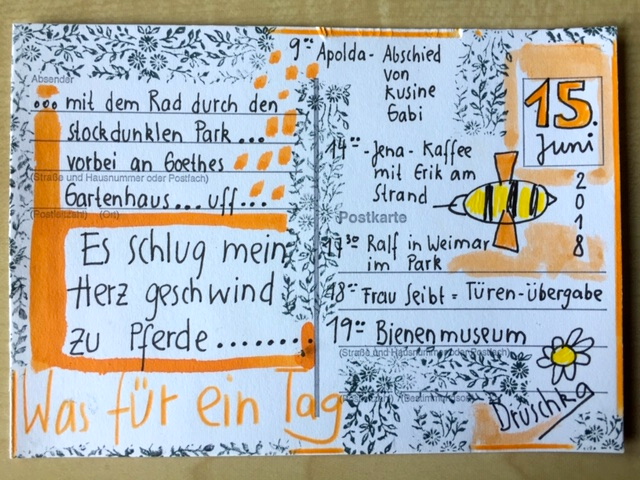 Absender
... mit dem Rad durch den
stockdunklen Park ...
vorbei an Goethes
(Straße und Hausnummer oder Postfach)
Gartenhaus ... uff ...
(Postleitzahl) (Ort)
Es schlug mein
Herz geschwind
zu Pferde ........
Was für ein Tag
9°° Apolda - Abschied
von
Kusine
Gabi
14°° - Jena - Kaffee
mit Erik am
Strand
Postkarte
17³⁰ Ralf in Weimar
im Park
18°° Frau Seibt = Türen-Übergabe
19°° Bienenmuseum
(Straße und Hausnummer oder Postfach)
Druschka
15.
Juni
2018